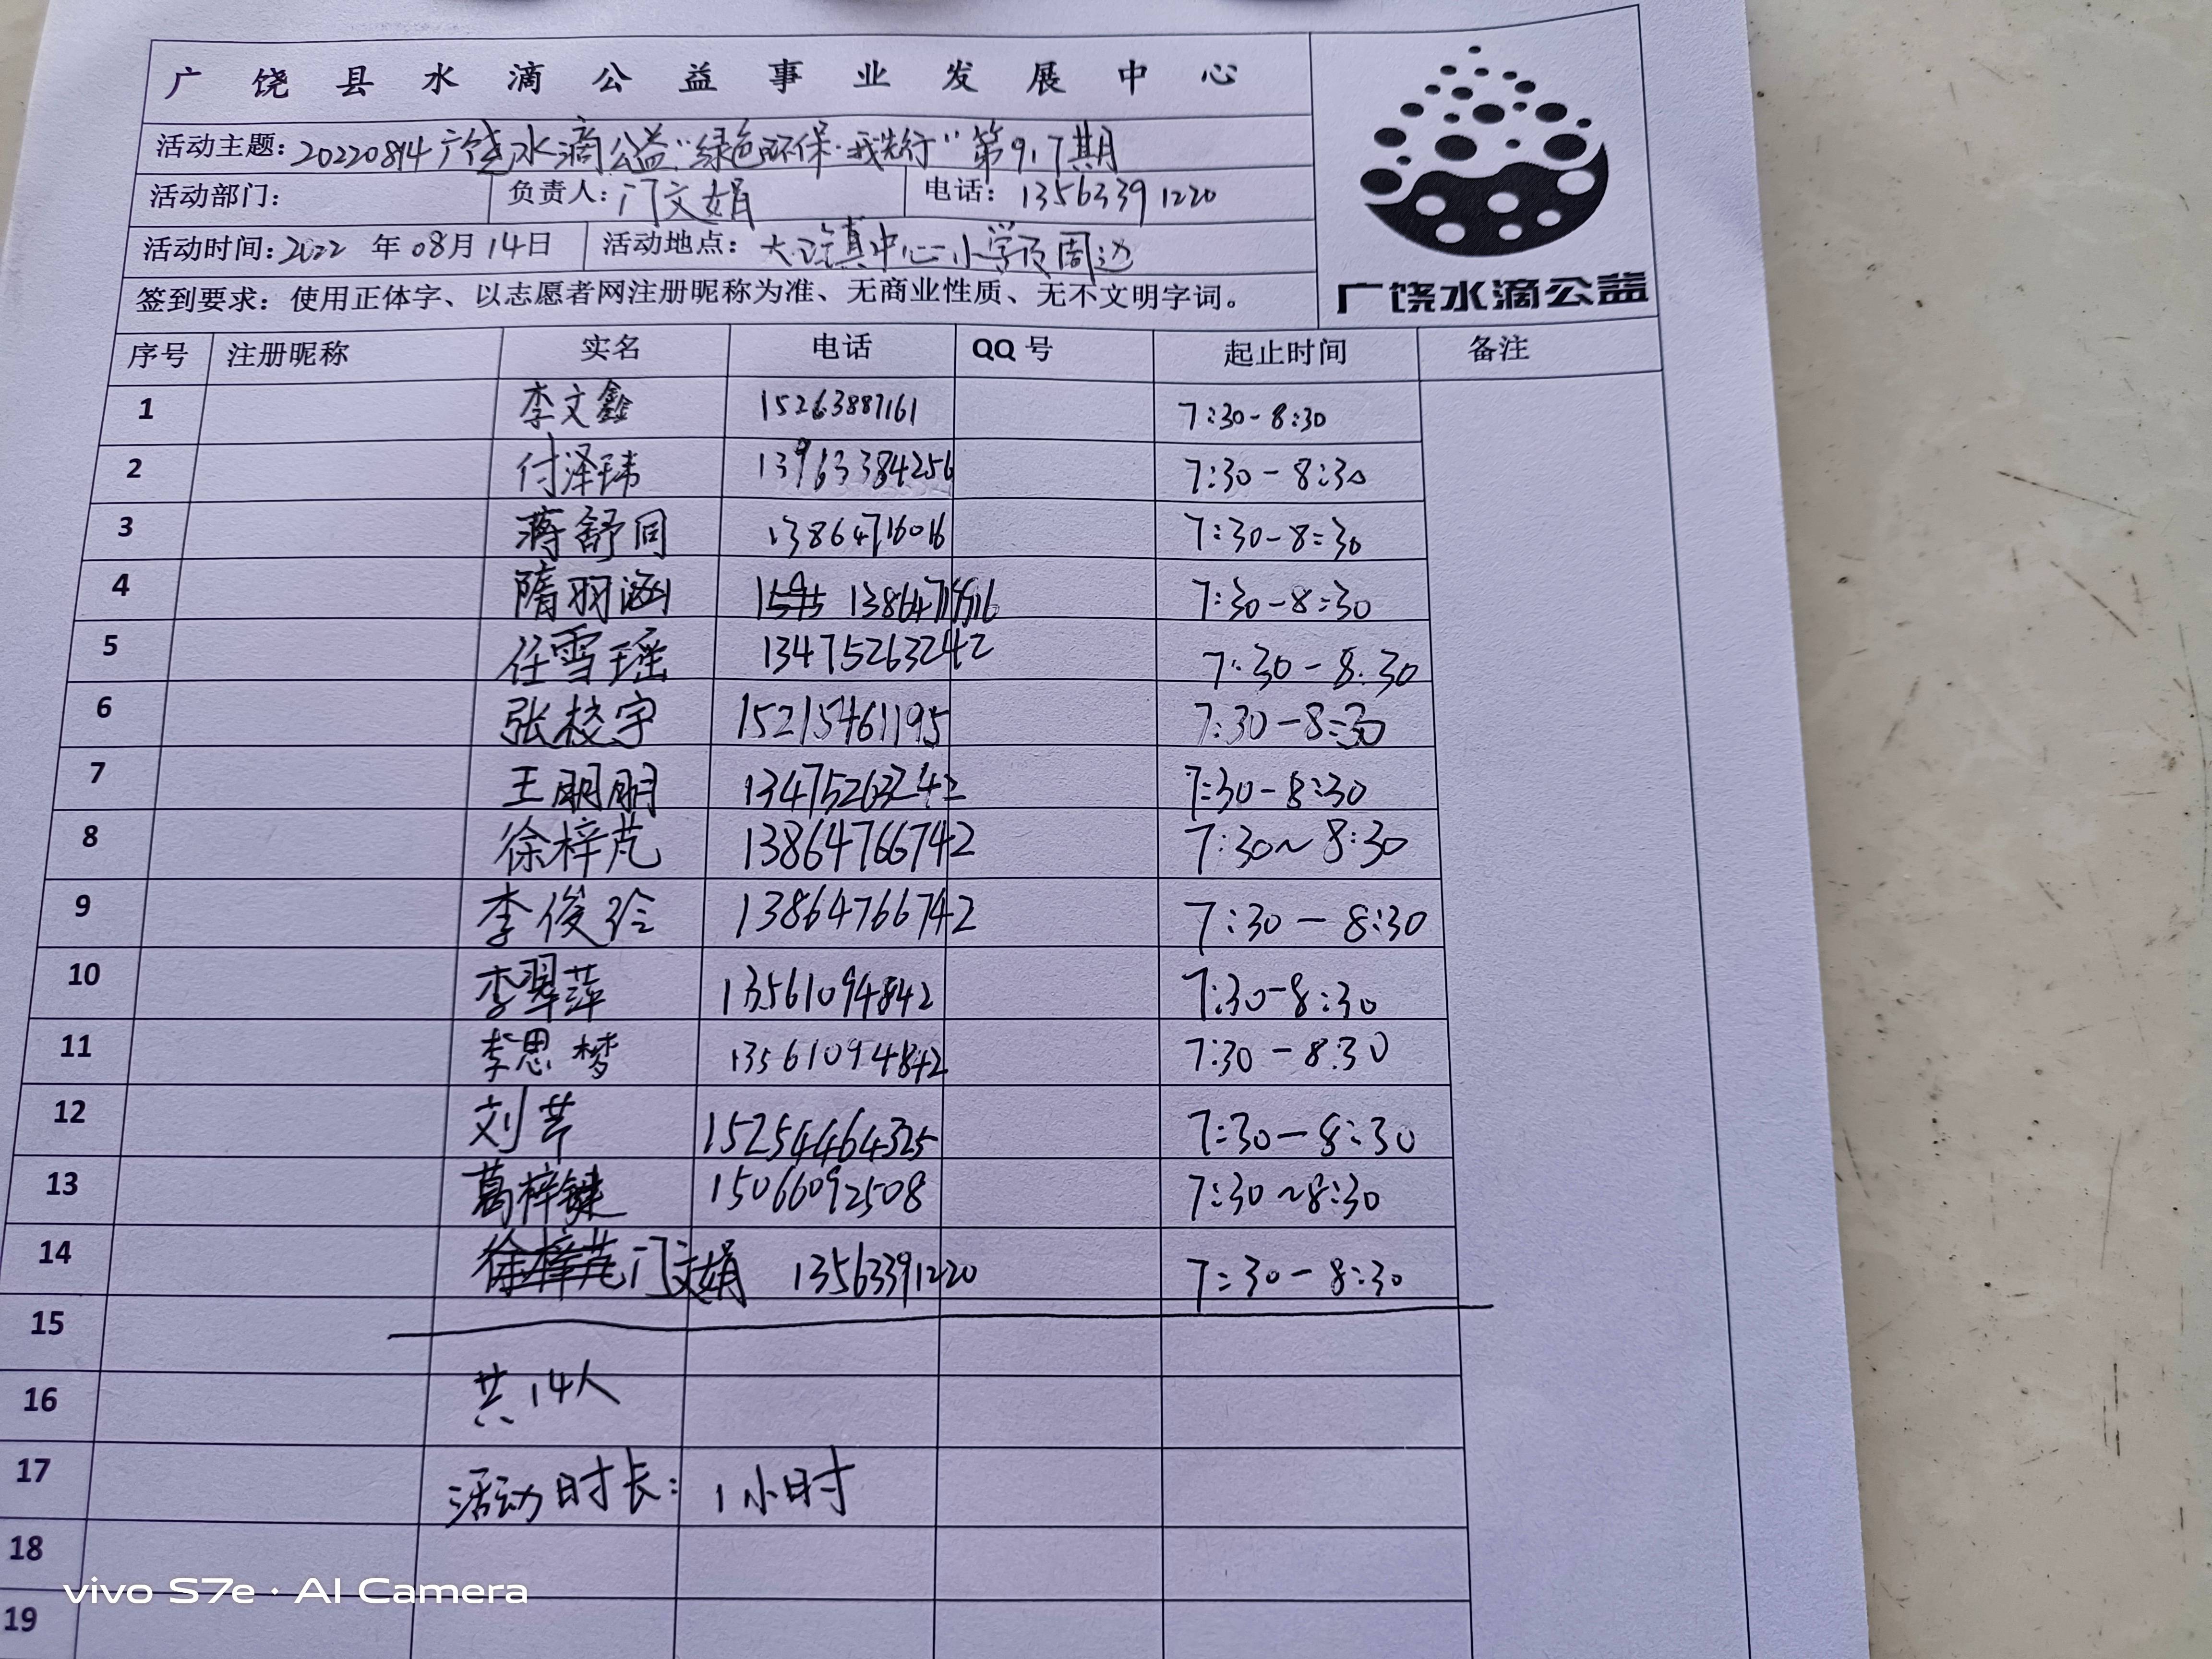 广饶县水滴公益事业发展中心
活动主题:20220814广饶水滴公益“绿色环保·我先行”第9.7期
活动部门: 负责人:门文娟 电话:13563391220
活动时间:2022年08月14日 活动地点:大王镇中心小学及周边
签到要求:使用正体字、以志愿者网注册昵称为准、无商业性质、无不文明字词。
广饶水滴公益
序号 注册昵称 实名 电话 QQ号 起止时间 备注
1 李文鑫 15263887161 7:30-8:30
2 付泽玮 13963384256 7:30-8:30
3 蒋舒同 13864716016 7:30-8:30
4 隋羽涵 7:30-8:30
5 任雪瑶 13475263242 7:30-8.30
6 张校宇 15215461195 7:30-8:30
7 王朋朋 13475263242 7:30-8:30
8 徐梓芃 13864766742 7:30~8:30
9 李俊玲 13864766742 7:30-8:30
10 李翠萍 13561094842 7:30-8:30
11 李思梦 13561094842 7:30-8:30
12 刘芹 15254464325 7:30-8:30
13 葛梓键 15066092508 7:30~8:30
14 门文娟 13563391220 7:30-8:30
15
16 共14人
17 活动时长:1小时
18
19
vivo S7e · AI Camera